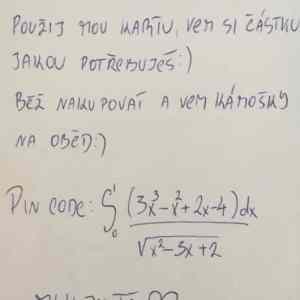 POUŽIJ MOU KARTU, VEM SI ČÁSTKU
JAKOU POTŘEBUJEŠ:)
BĚŽ NAKUPOVAT A VEM KÁMOŠKY
NA OBĚD:)
PIN CODE: ∫₀¹ (3x³-x²+2x-4)dx / √(x²-3x+2)